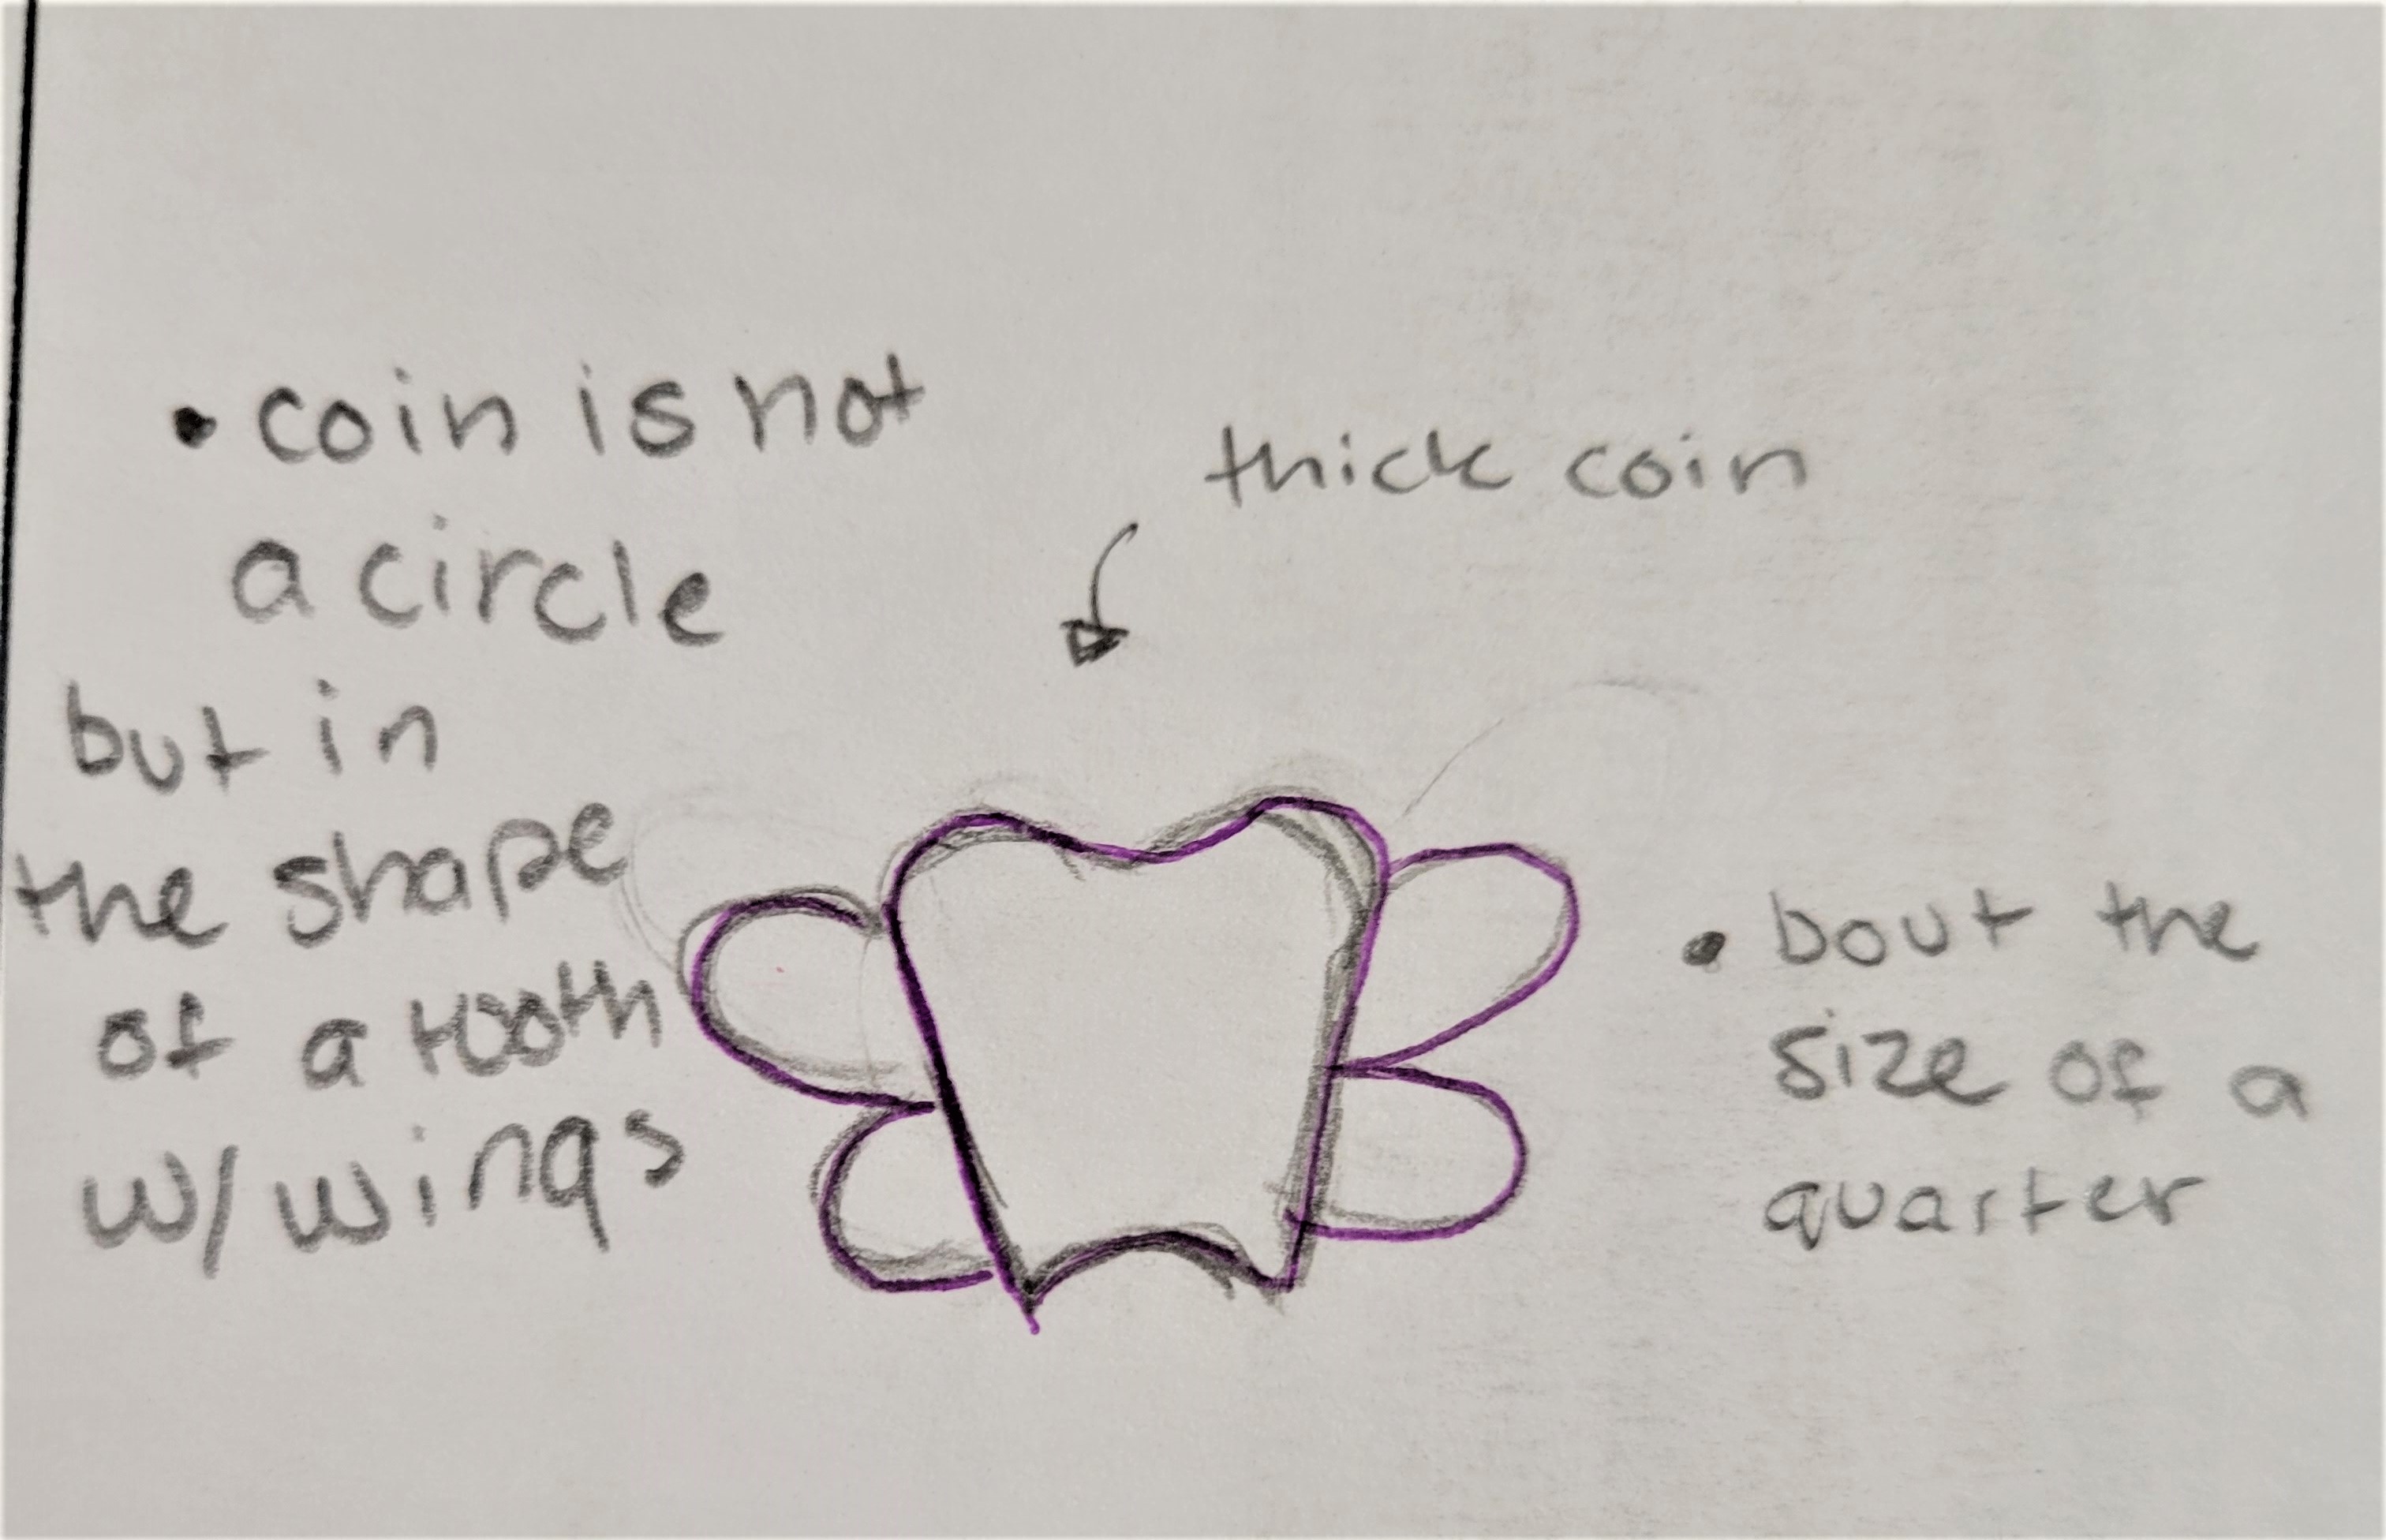 • coin is not
a circle
but in
the shape
of a tooth
w/ wings
thick coin
• bout the
size of a
quarter